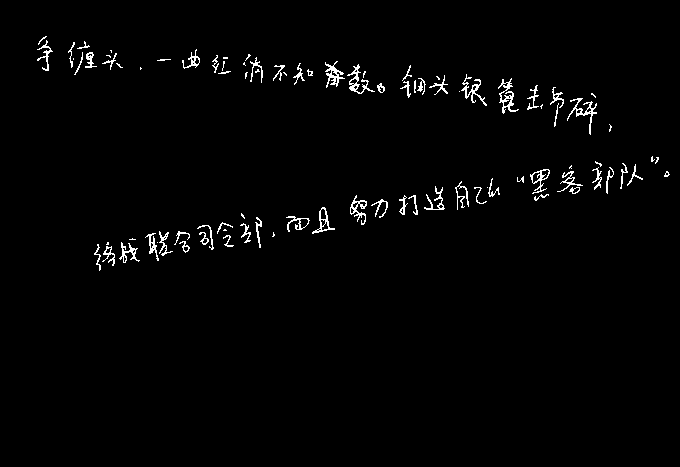 争缠头,一曲红绡不知数。钿头银篦击节碎,
络战联合司令部,而且努力打造自己的“黑客部队”。